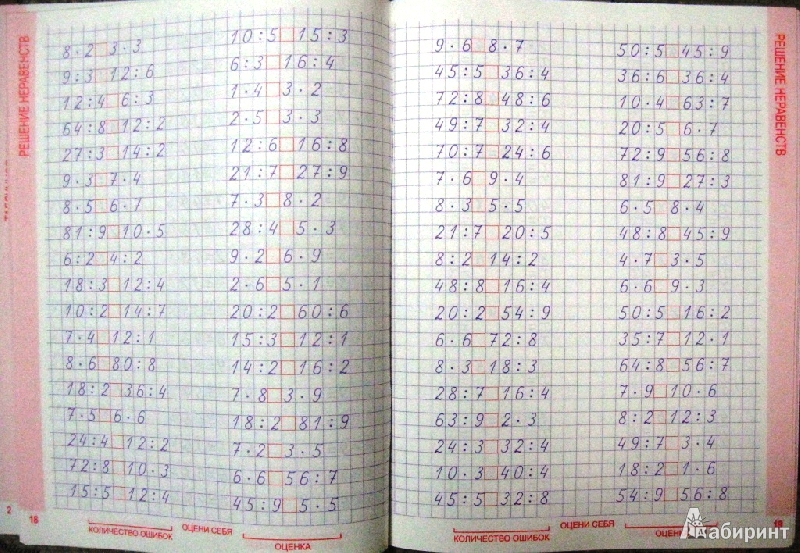 РЕШЕНИЕ НЕРАВЕНСТВ
8·2□3·3
9:3□12:6
12:4□6:3
64:8□12:2
27:3□14:2
9·3□7·4
8·5□6·7
81:9□10·5
6:2□4:2
18:3□12:4
10:2□14:7
7·4□12:1
8·6□80:8
18:2□36:4
7·5□6·6
24:4□12:2
72:8□10·3
15:5□12:4
10:5□15:3
6:3□16:4
1·4□3·2
2·5□3·3
12:6□16:8
21:7□27:9
7·3□8·2
28:4□5·3
9·2□6·9
2·6□5·1
20:2□60:6
15:3□12:1
14:2□16:2
7·8□3·9
18:2□81:9
7·2□3·5
6·6□56:7
45:9□5·5
2 18
КОЛИЧЕСТВО ОШИБОК ОЦЕНИ СЕБЯ ОЦЕНКА
9·6□8·7
45:5□36:4
72:8□48:6
49:7□32:4
70:7□24:6
7·6□9·4
8·3□5·5
21:7□20:5
8:2□14:2
48:8□16:4
20:2□54:9
6·6□72:8
8·3□18:3
28:7□16:4
63:9□2·3
24:3□32:4
10·3□40:4
45:5□32:8
50:5□45:9
36:6□36:4
10·4□63:7
20:5□6·7
72:9□56:8
81:9□27:3
6·5□8·4
48:8□45:9
4·7□3·5
6·6□9·3
50:5□16:2
35:7□12·1
64:8□56:7
7·9□10·6
8:2□12:3
49:7□3·4
18:2□1·6
54:9□56:8
РЕШЕНИЕ НЕРАВЕНСТВ
КОЛИЧЕСТВО ОШИБОК ОЦЕНИ СЕБЯ
19
Лабиринт